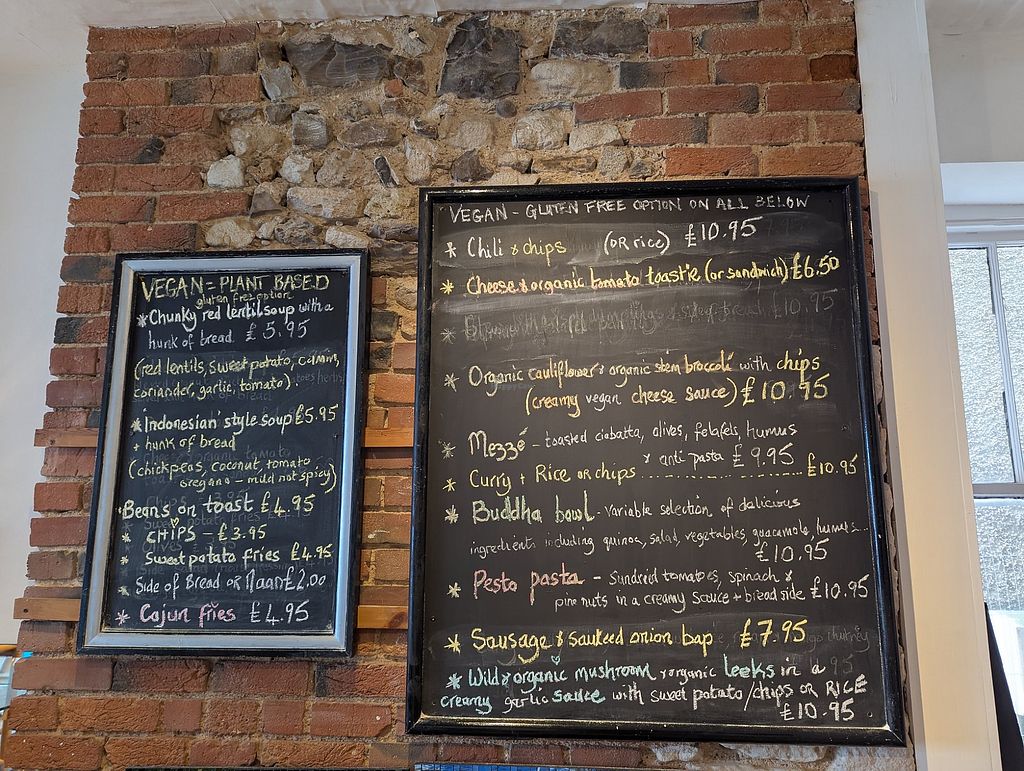 VEGAN = PLANT BASED
gluten free option
* Chunky red lentil soup with a
hunk of bread £5.95
(red lentils, sweet potato, cumin,
coriander, garlic, tomato).
* Indonesian style soup £5.95
+ hunk of bread
(chickpeas, coconut, tomato
oregano - mild not spicy)
Beans on toast £4.95
* CHIPS - £3.95
* Sweet potato fries £4.95
* Side of Bread OR Naan £2.00
* Cajun fries £4.95
VEGAN - GLUTEN FREE OPTION ON ALL BELOW
* Chili & chips (OR rice) £10.95
* Cheese & organic tomato toastie (or sandwich) £6.50
* Organic cauliflower & organic stem broccoli with chips
(creamy vegan cheese sauce) £10.95
* Mezzé - toasted ciabatta, olives, felafels, humus
& anti pasta £9.95
* Curry + Rice OR chips ........... £10.95
* Buddha bowl - variable selection of delicious
ingredients including quinoa, salad, vegetables, guacamole, humus...
£10.95
* Pesto pasta - Sundried tomatoes, spinach &
pine nuts in a creamy sauce + bread side £10.95
* Sausage & sauteed onion bap £7.95
* Wild & organic mushroom & organic leeks in a
creamy garlic sauce with sweet potato/chips OR RICE
£10.95